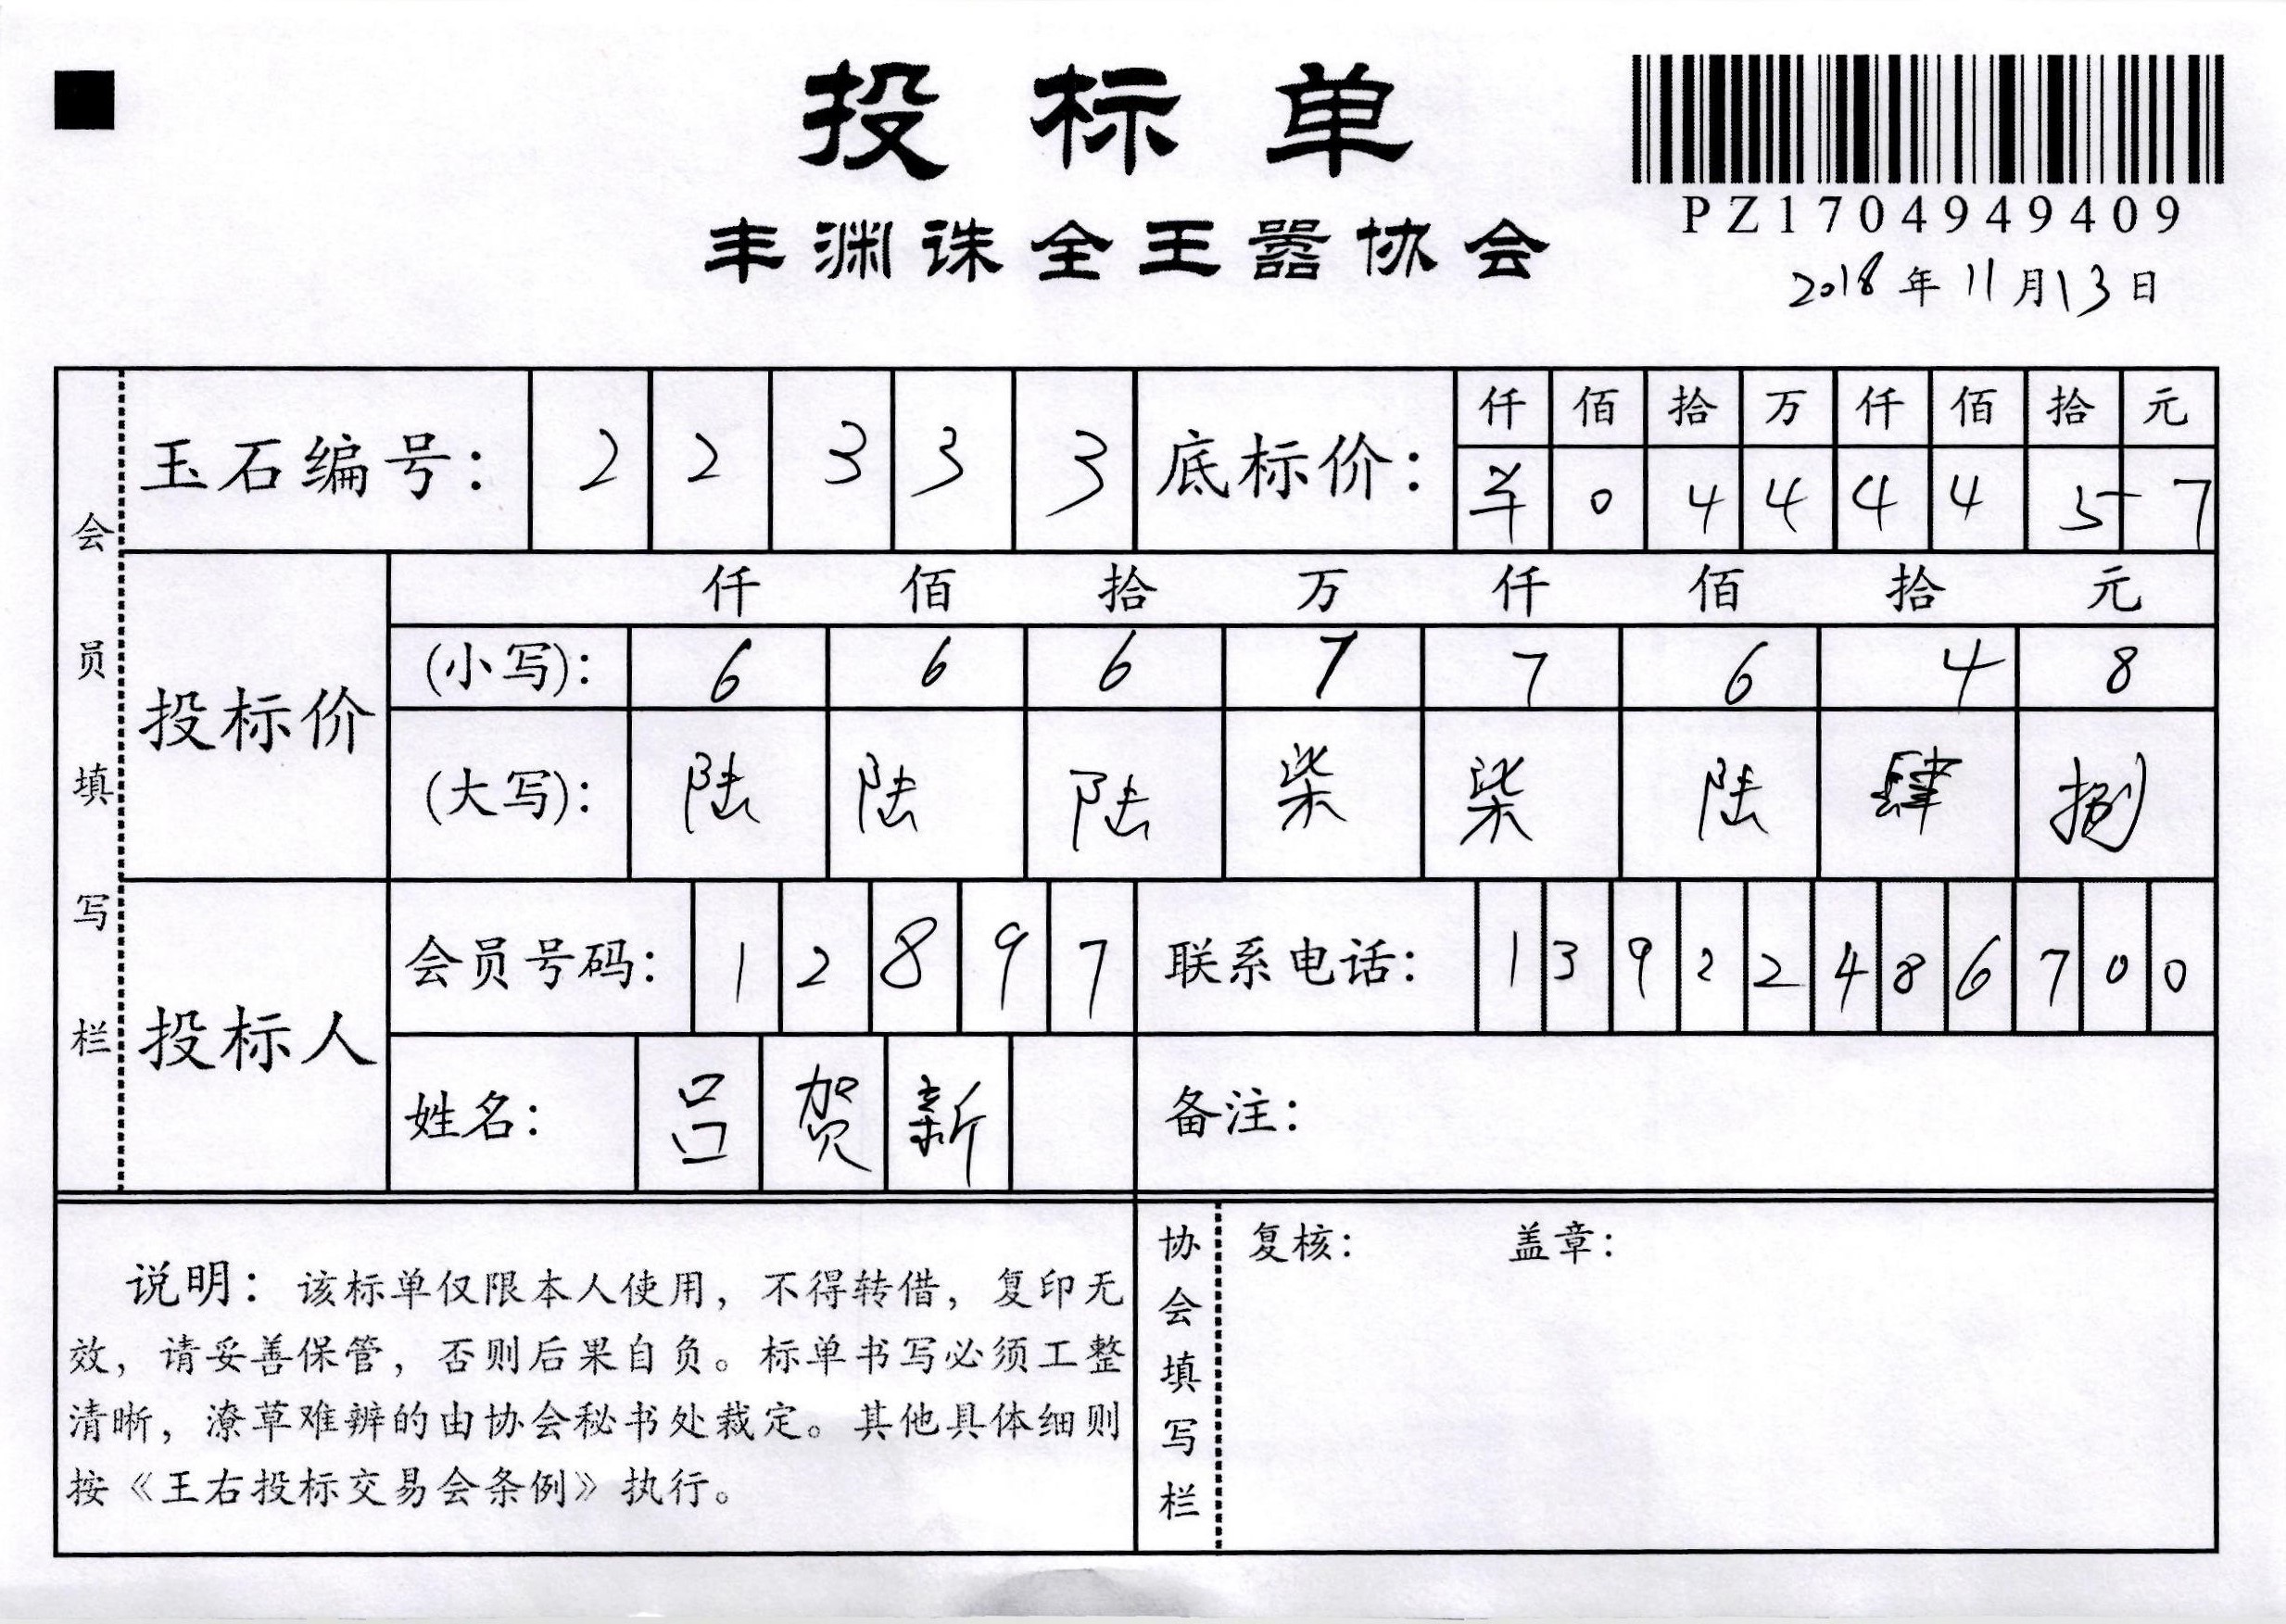 投标单
丰渊诛全王嚣协会
PZ1704949409
2018年11月13日
会员填写栏
玉石编号： 2 2 3 3 3
底标价： 仟 佰 拾 万 仟 佰 拾 元
0 4 4 4 4 5 7
投标价
仟 佰 拾 万 仟 佰 拾 元
(小写)： 6 6 6 7 7 6 4 8
(大写)： 陆 陆 陆 柒 柒 陆 肆 捌
投标人
会员号码： 1 2 8 9 7
联系电话： 1 3 9 2 2 4 8 6 7 0 0
姓名： 吕 贺 新
备注：
说明：该标单仅限本人使用，不得转借，复印无
效，请妥善保管，否则后果自负。标单书写必须工整
清晰，潦草难辨的由协会秘书处裁定。其他具体细则
按《王右投标交易会条例》执行。
协会填写栏
复核： 盖章：